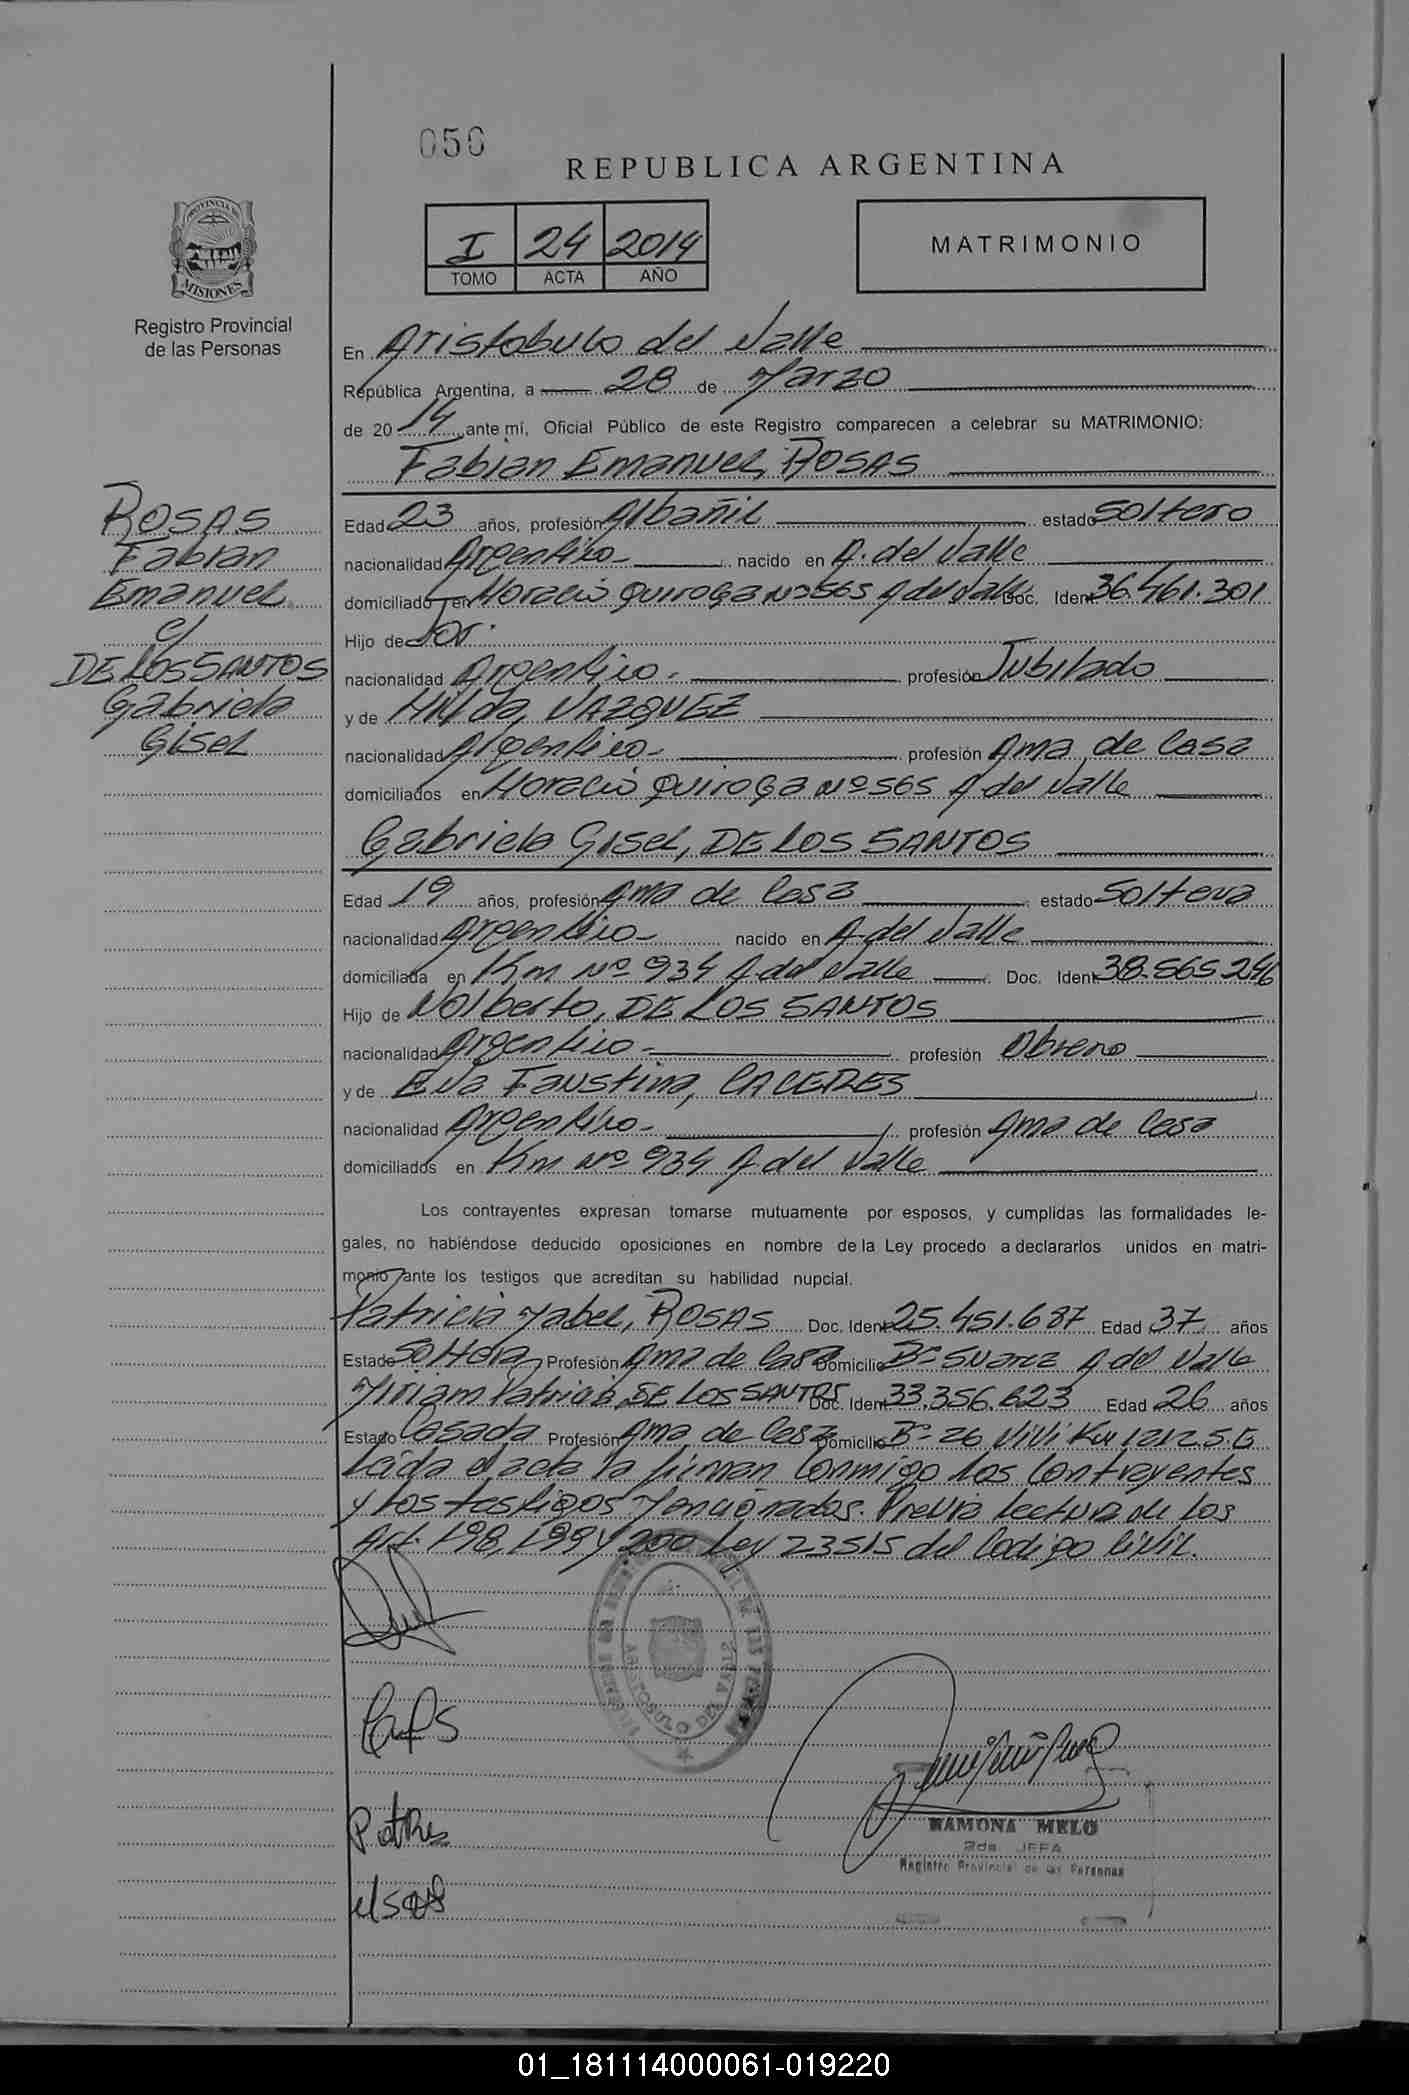 050
REPUBLICA ARGENTINA
I 24 2014
TOMO ACTA AÑO
MATRIMONIO
PROVINCIA DE
MISIONES
Registro Provincial
de las Personas
ROSAS
Fabian
Emanuel
c/
DE LOS SANTOS
Gabriela
Gisel
En Aristobulo del Valle
República Argentina, a 28 de Marzo
de 2014 ante mí, Oficial Público de este Registro comparecen a celebrar su MATRIMONIO:
Fabian Emanuel, ROSAS
Edad 23 años, profesión Albañil estado Soltero
nacionalidad Argentino nacido en A. del Valle
domiciliado en Horacio Quiroga Nº 565 A del Valle Doc. Ident. 36.461.301
Hijo de
nacionalidad Argentino - profesión Jubilado
y de Hilda, VAZQUEZ
nacionalidad Argentino - profesión Ama de Casa
domiciliados en Horacio Quiroga Nº 565 A. del Valle
Gabriela Gisel, DE LOS SANTOS
Edad 19 años, profesión Ama de Casa estado Soltera
nacionalidad Argentino - nacido en A. del Valle
domiciliada en Km Nº 934 A. del Valle Doc. Ident. 38.565.246
Hijo de Nolberto, DE LOS SANTOS
nacionalidad Argentino - profesión Obrero
y de Eva Faustina, CACERES
nacionalidad Argentino - profesión Ama de Casa
domiciliados en Km Nº 934 A. del Valle
Los contrayentes expresan tomarse mutuamente por esposos, y cumplidas las formalidades le-
gales, no habiéndose deducido oposiciones en nombre de la Ley procedo a declararlos unidos en matri-
monio ante los testigos que acreditan su habilidad nupcial.
Patricia Yabel, ROSAS Doc. Ident. 25.451.687 Edad 37 años
Estado Soltera Profesión Ama de Casa Domicilio Bº Suarez A del Valle
Miriam Patricia DE LOS SANTOS Doc. Ident. 33.356.623 Edad 26 años
Estado Casada Profesión Ama de Casa Domicilio Bº 26 Vivi Km
Leida el acta la firman Conmigo los Contrayentes
y los testigos Mencionados. Previa lectura de los
Art. 198, 199 y 200 Ley 23515 del Codigo Civil.
ARISTOBULO DEL VALLE
RAMONA MELO
2da. JEFA
Registro Provincial de las Personas
01_181114000061-019220